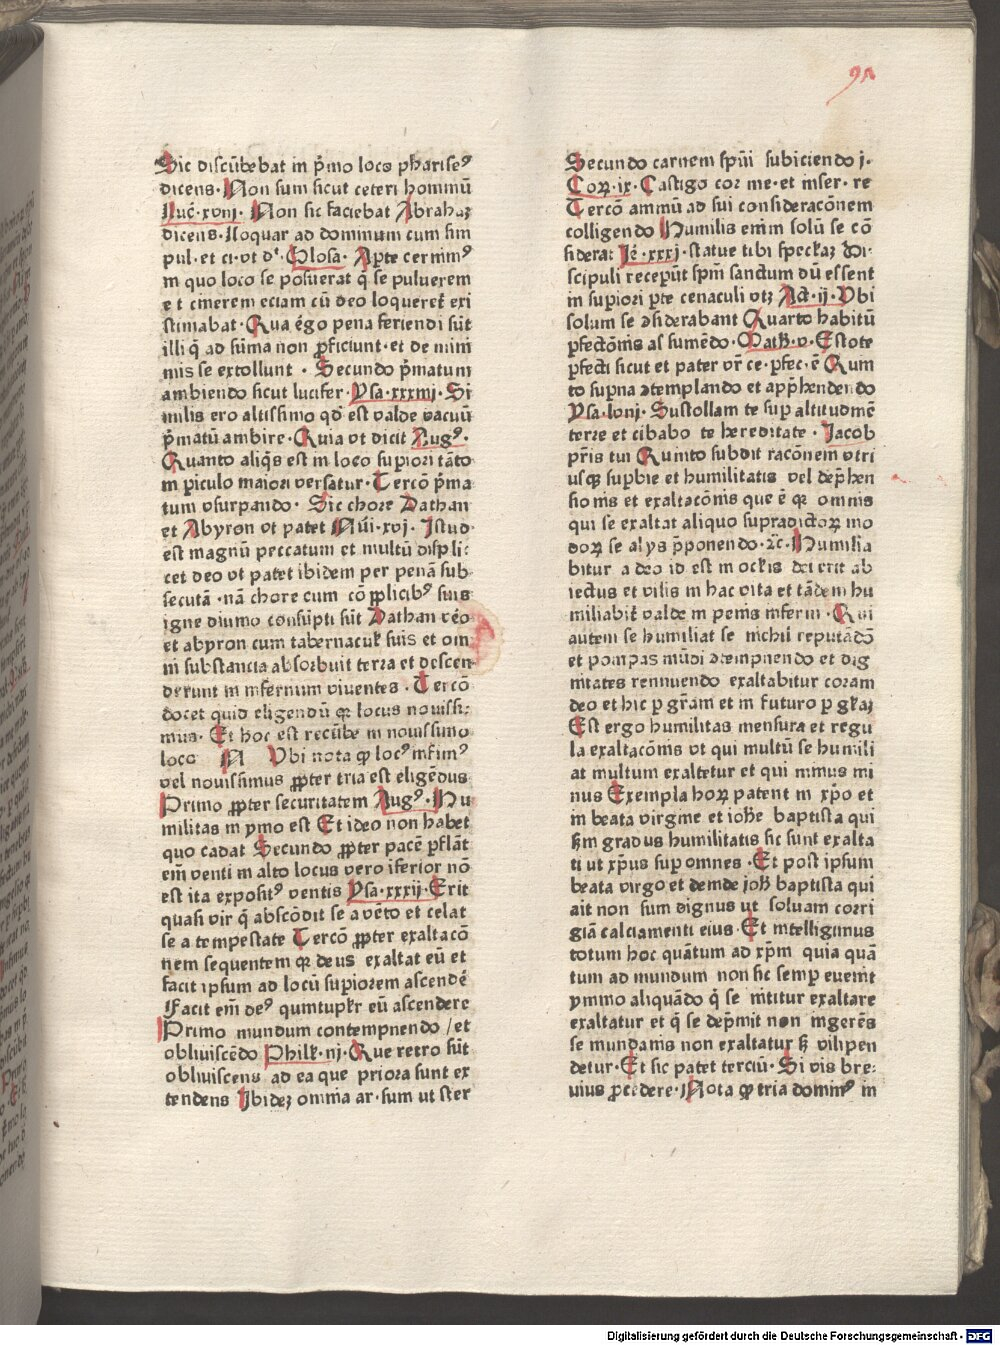 91
Sic discūbebat in p̄mo loco pharise⁹
dicens · Non sum sicut ceteri hominū
Luc̄ · xviij · Non sic faciebat Abrahaꝫ
dicens · Loquar ad dominum cum sim
pul · et ci · vt d͛ · Glosa · Aperte cernim⁹
in quo loco se posuerat q̄ se puluerem
et cinerem eciam cū deo loqueret᷑ exi
stimabat · Qua ergo pena feriendi sūt
illi q̄ ad sūma non ꝓficiunt · et de mini
mis se extollunt · Secundo p̄matum
ambiendo sicut lucifer · Ysa · xxxiiij · Si
milis ero altissimo qđ est valde vacuū
p̄matū ambire · Quia vt dicit Aug⁹ ·
Quanto aliq̄s est in loco supiori tāto
in piculo maiori versatur · Tercō p̄ma
tum vsurpando · Sic chore Dathan
et Abyron vt patet Nūi · xvj · Istud
est magnū peccatum et multū displi:
cet deo vt patet ibidem per penā sub
secutā · nā chore cum cō ꝓplicib⁹ suis
igne diuino consūpti sūt Dathan vēo
et abyron cum tabernacuł suis et om
ni substancia absorbuit terra et descen
derunt in infernum viuentes · Tercō
docet quid eligendū qꝛ locus nouissi:
mus · Et hoc est recūbe in nouissimo
loco N Vbi nota ꝙ loc⁹ infim⁹
vel nouissimus ꝓpter tria est eligēdus
Primo ꝓpter securitatem Aug⁹ · Hu
militas in ymo est Et ideo non habet
quo cadat Secundo ꝓpter pacē pflāt
em̄ venti in alto locus vero iferior nō
est ita exposit⁹ ventis Ysa · xxxij · Erit
quasi vir q̄ abscōdit se a vēto et celat
se a tempestate Tercō ꝓpter exaltacō
nem sequentem qꝛ deus exaltat eū et
facit ipsum ad locū supiorem ascendē
Facit em̄ de⁹ quintupłr eū ascendere
Primo mundum contempnendo / et
obliuiscēdo Philł · iij · Que retro sūt
obliuiscens ad ea que priora sunt ex
tendens Ibideꝫ omnia ar · sum ut ster
Secundo carnem spūi subiciendo j ·
Coꝝ · ix · Castigo cor me · et inser · re
Tercō animū ad sui consideracōnem
colligendo Humilis enim solū se cō
siderat Je͛ · xxxj · statue tibi speckaꝫ Di:
scipuli recepūt spm̄ sanctum dū essent
in supiori pte cenaculi vtꝫ Act · ij · Vbi
solum se ɔsiderabant Quarto habitū
pfectōnis assumēdo · Math · v · Estote
pfecti sicut et pater vr̄ ce · pfec · ē Quin
to supna ɔtemplando et app̄hendendo
Ysa · lviij · Sustollam te sup altitudinē
terre et cibabo te hereditate · Jacob
pr̄is tui Quinto subdit racōnem vtri
usqꝫ supbie et humilitatis vel dep̄hen
sionis et exaltacōnis que ē qꝛ omnis
qui se exaltat aliquo supradictoꝝ mo
doꝝ se alijs p̄ponendo · ꝛc̄ · Humilia
bitur a deo id est in ocłis dei erit ab
iectus et vilis in hac vita et tādem hu
miliabit᷑ valde in penis inferni · Qui
autem se humiliat se nichil reputādō
et pompas mūdi ɔtempnendo et dig
nitates rennuendo exaltabitur coram
deo et hic p gr̄am et in futuro p głiaꝫ
Est ergo humilitas mensura et regu
la exaltacōnis vt qui multū se humili
at multum exaltetur et qui minus mi
nus Exempla hoꝝ patent in xp̄o et
in beata virgine et ioħe baptista qui
ẜm gradus humilitatis sic sunt exalta
ti ut xp̄us sup omnes · Et post ipsum
beata virgo et deinde joħ baptista qui
ait non sum dignus ut soluam corri
giā calciamenti eius · Et intelligimus
totum hoc quātum ad xp̄m quia quā
tum ad mundum non sic semp euenit
ymmo aliquādo q̄ se nititur exaltare
exaltatur et q̄ se dep̄mit non ingerēs
se mundanis non exaltatur ẜ vilipen
detur · Et sic patet terciū · Si vis bre:
uius ꝓcedere · Nota ꝙ tria domin⁹ in
Digitalisierung gefördert durch die Deutsche Forschungsgemeinschaft - DFG